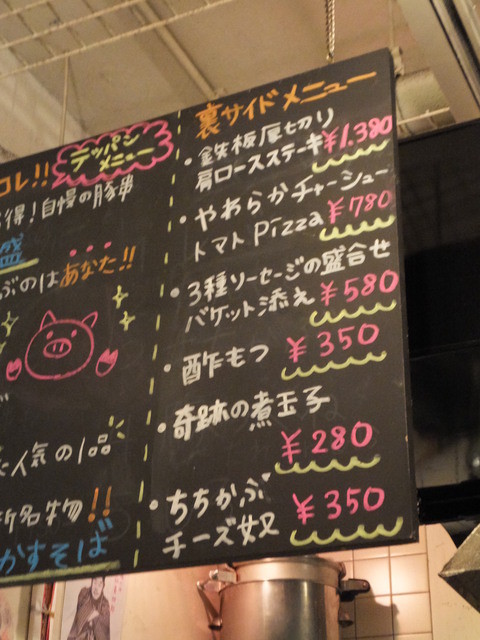 コレ!!
テッパン
メニュー
得!自慢の豚串
盛
ぶのはあなた!!
人気の1品
新名物!!
かすそば
裏サイドメニュー
・鉄板厚切り
肩ロースステーキ ¥1.380
・やわらかチャーシュー
トマトpizza ¥780
・3種ソーセージの盛合せ
バケット添え ¥580
・酢もつ ¥350
・奇跡の煮玉子
¥280
・ちちかぶ
チーズ奴 ¥350